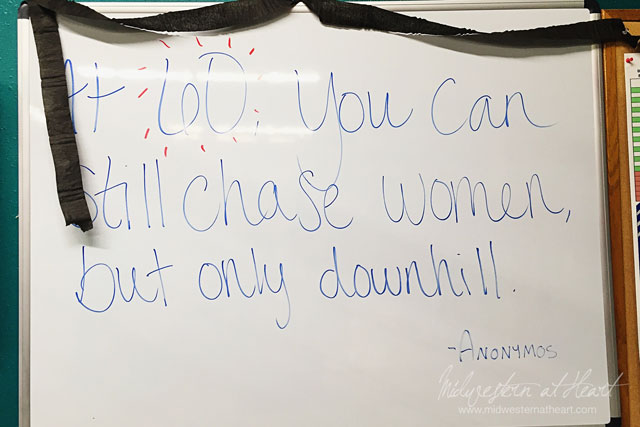 At 60, You Can
Still chase women,
but only downhill.
-ANONYMOS
Midwestern at Heart
www.midwesternatheart.com